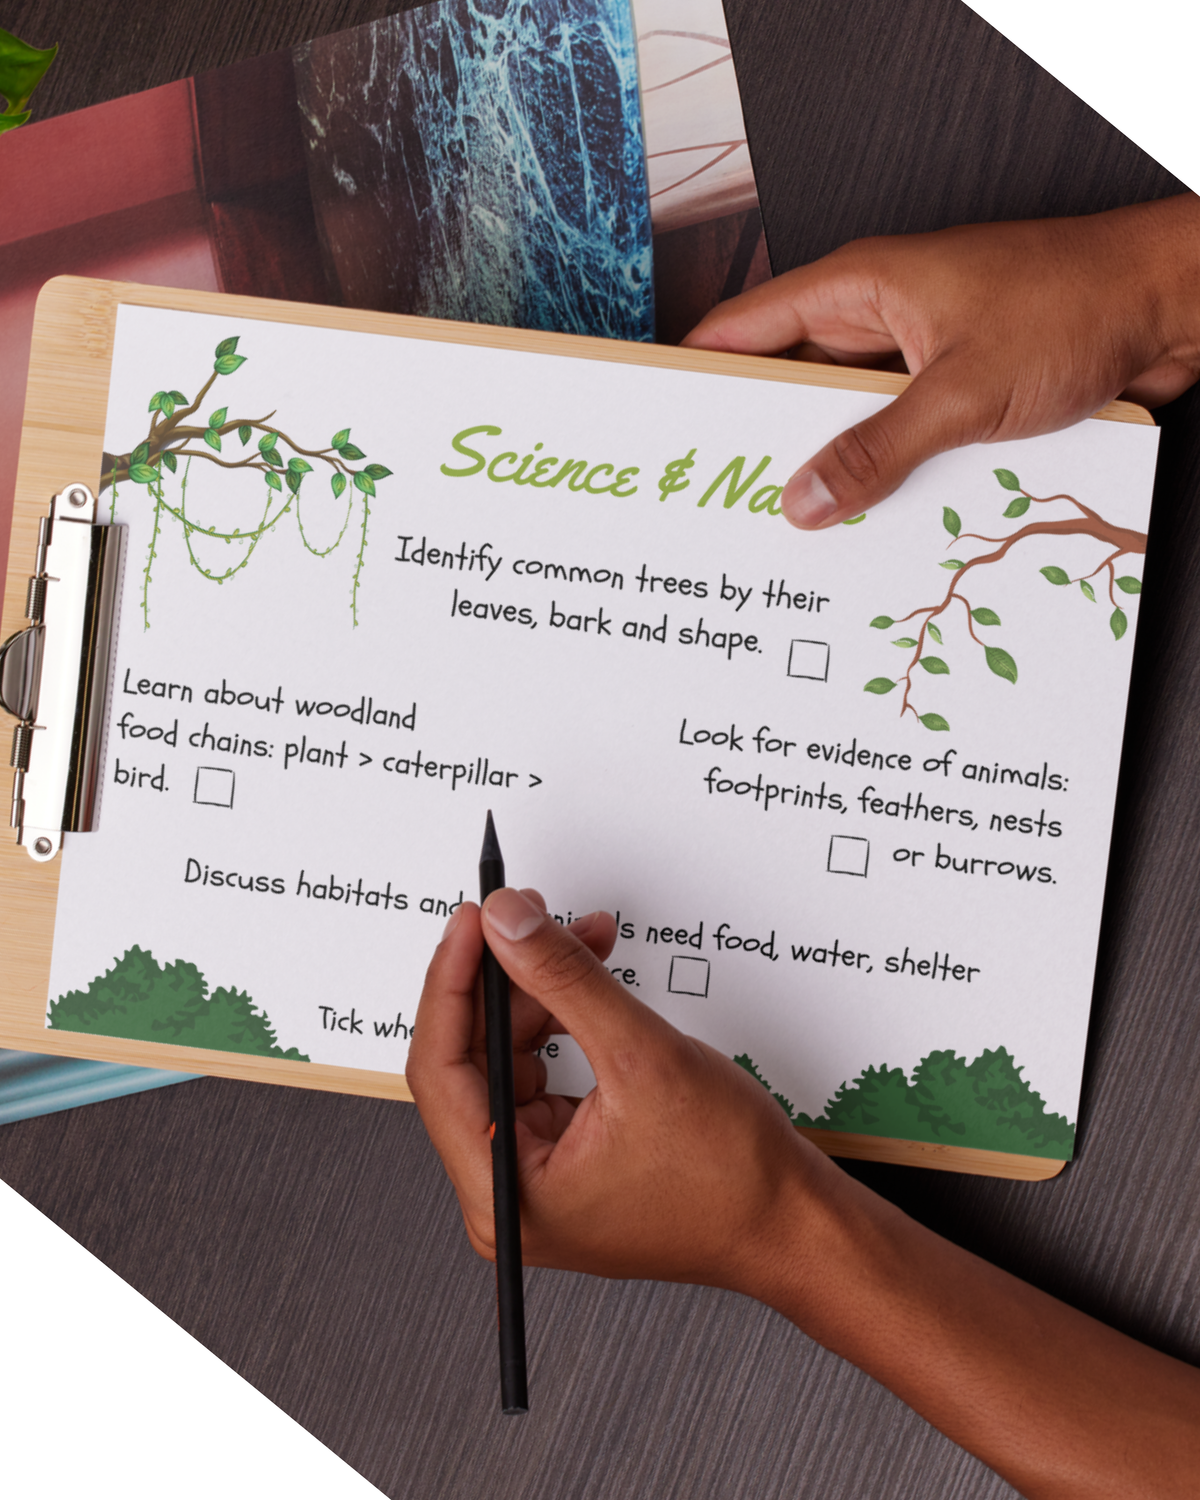 Science &
Identify common trees by their
leaves, bark and shape.
Learn about woodland
food chains: plant > caterpillar >
bird.
Look for evidence of animals:
footprints, feathers, nests
or burrows.
Discuss habitats and need food, water, shelter
Tick